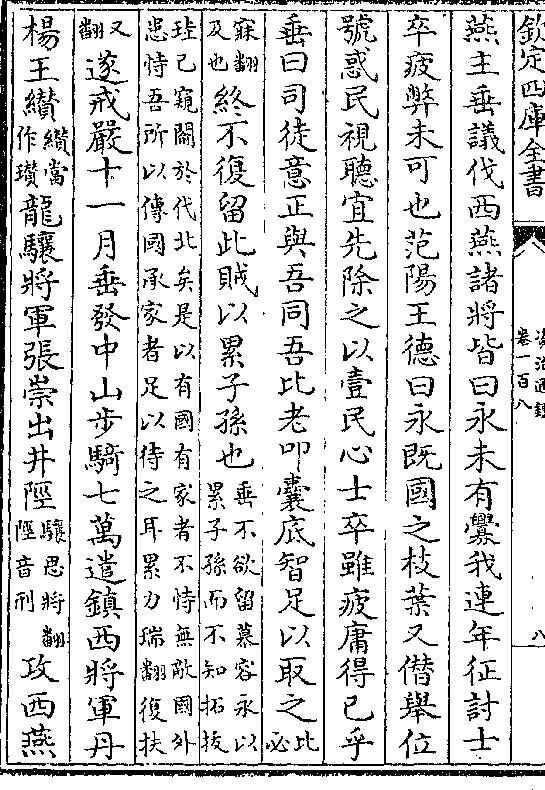 欽定四庫全書
資治通鑑
卷一百八
八
燕主垂議伐西燕諸將皆曰永未有釁我連年征討士
卒疲弊未可也范陽王德曰永既國之枝葉又僭舉位
號惑民視聽宜先除之以壹民心士卒雖疲庸得已乎
垂曰司徒意正與吾同吾比老叩囊底智足以取之比必
寐翻及也終不復留此賊以累子孫也垂不欲留慕容永以累子孫而不知拓拔
珪已窺關於代北矣是以有國有家者不恃無敵國外患恃吾所以傳國承家者足以待之耳累力瑞翻復扶
又翻遂戒嚴十一月垂發中山步騎七萬遣鎮西將軍丹
楊王纘纘當作瓚龍驤將軍張崇出井陘驤思將翻陘音刑攻西燕